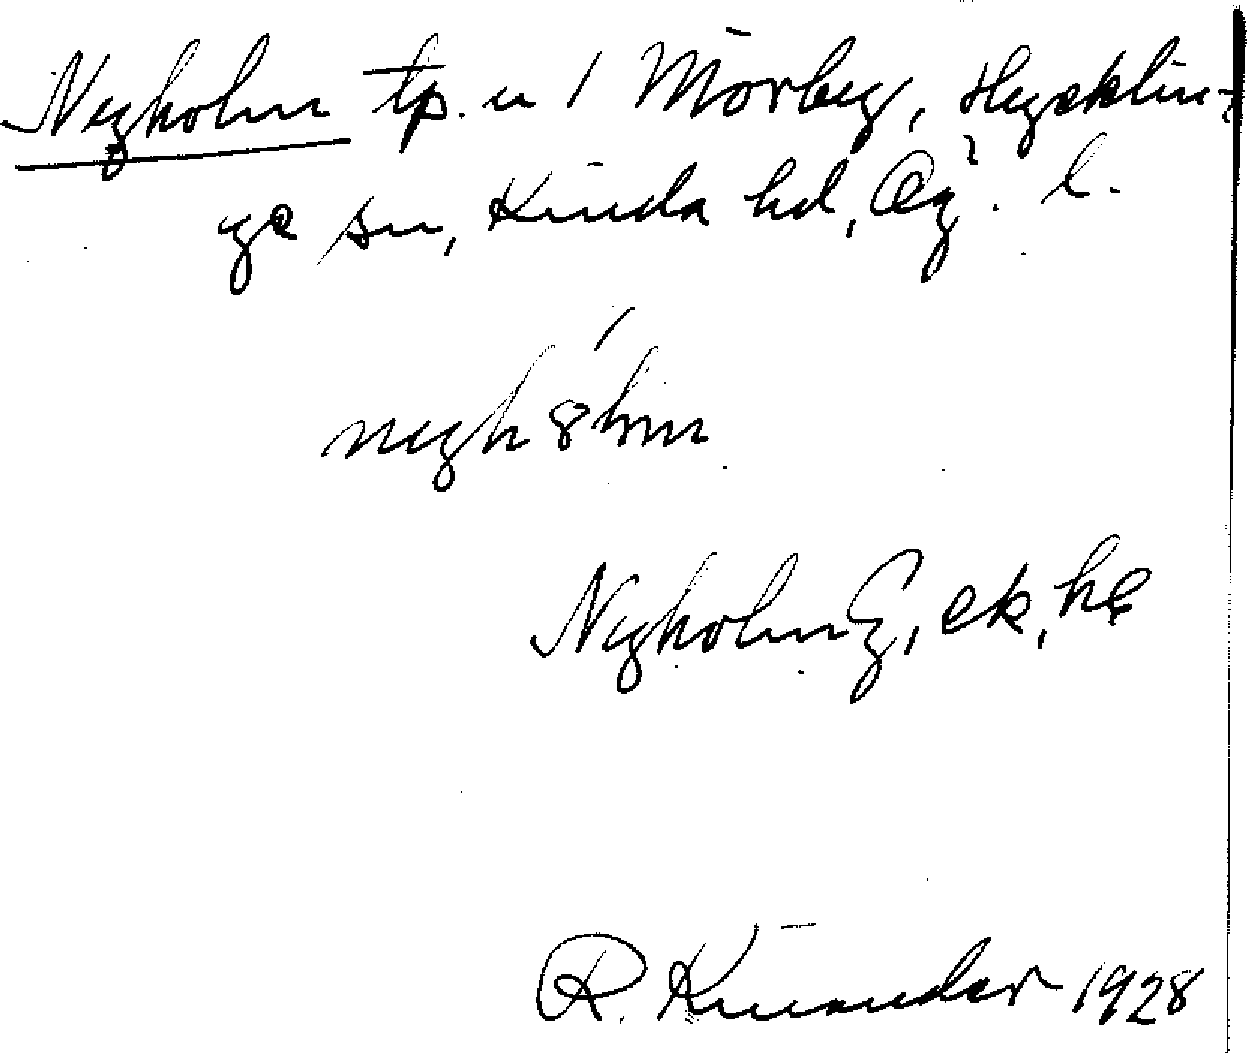 Nyholm tp. u / Mörby, Hycklin-
ge sn, Kinda hd, Ög. l.
Nyholm, ek, hc
R. Kinander 1928